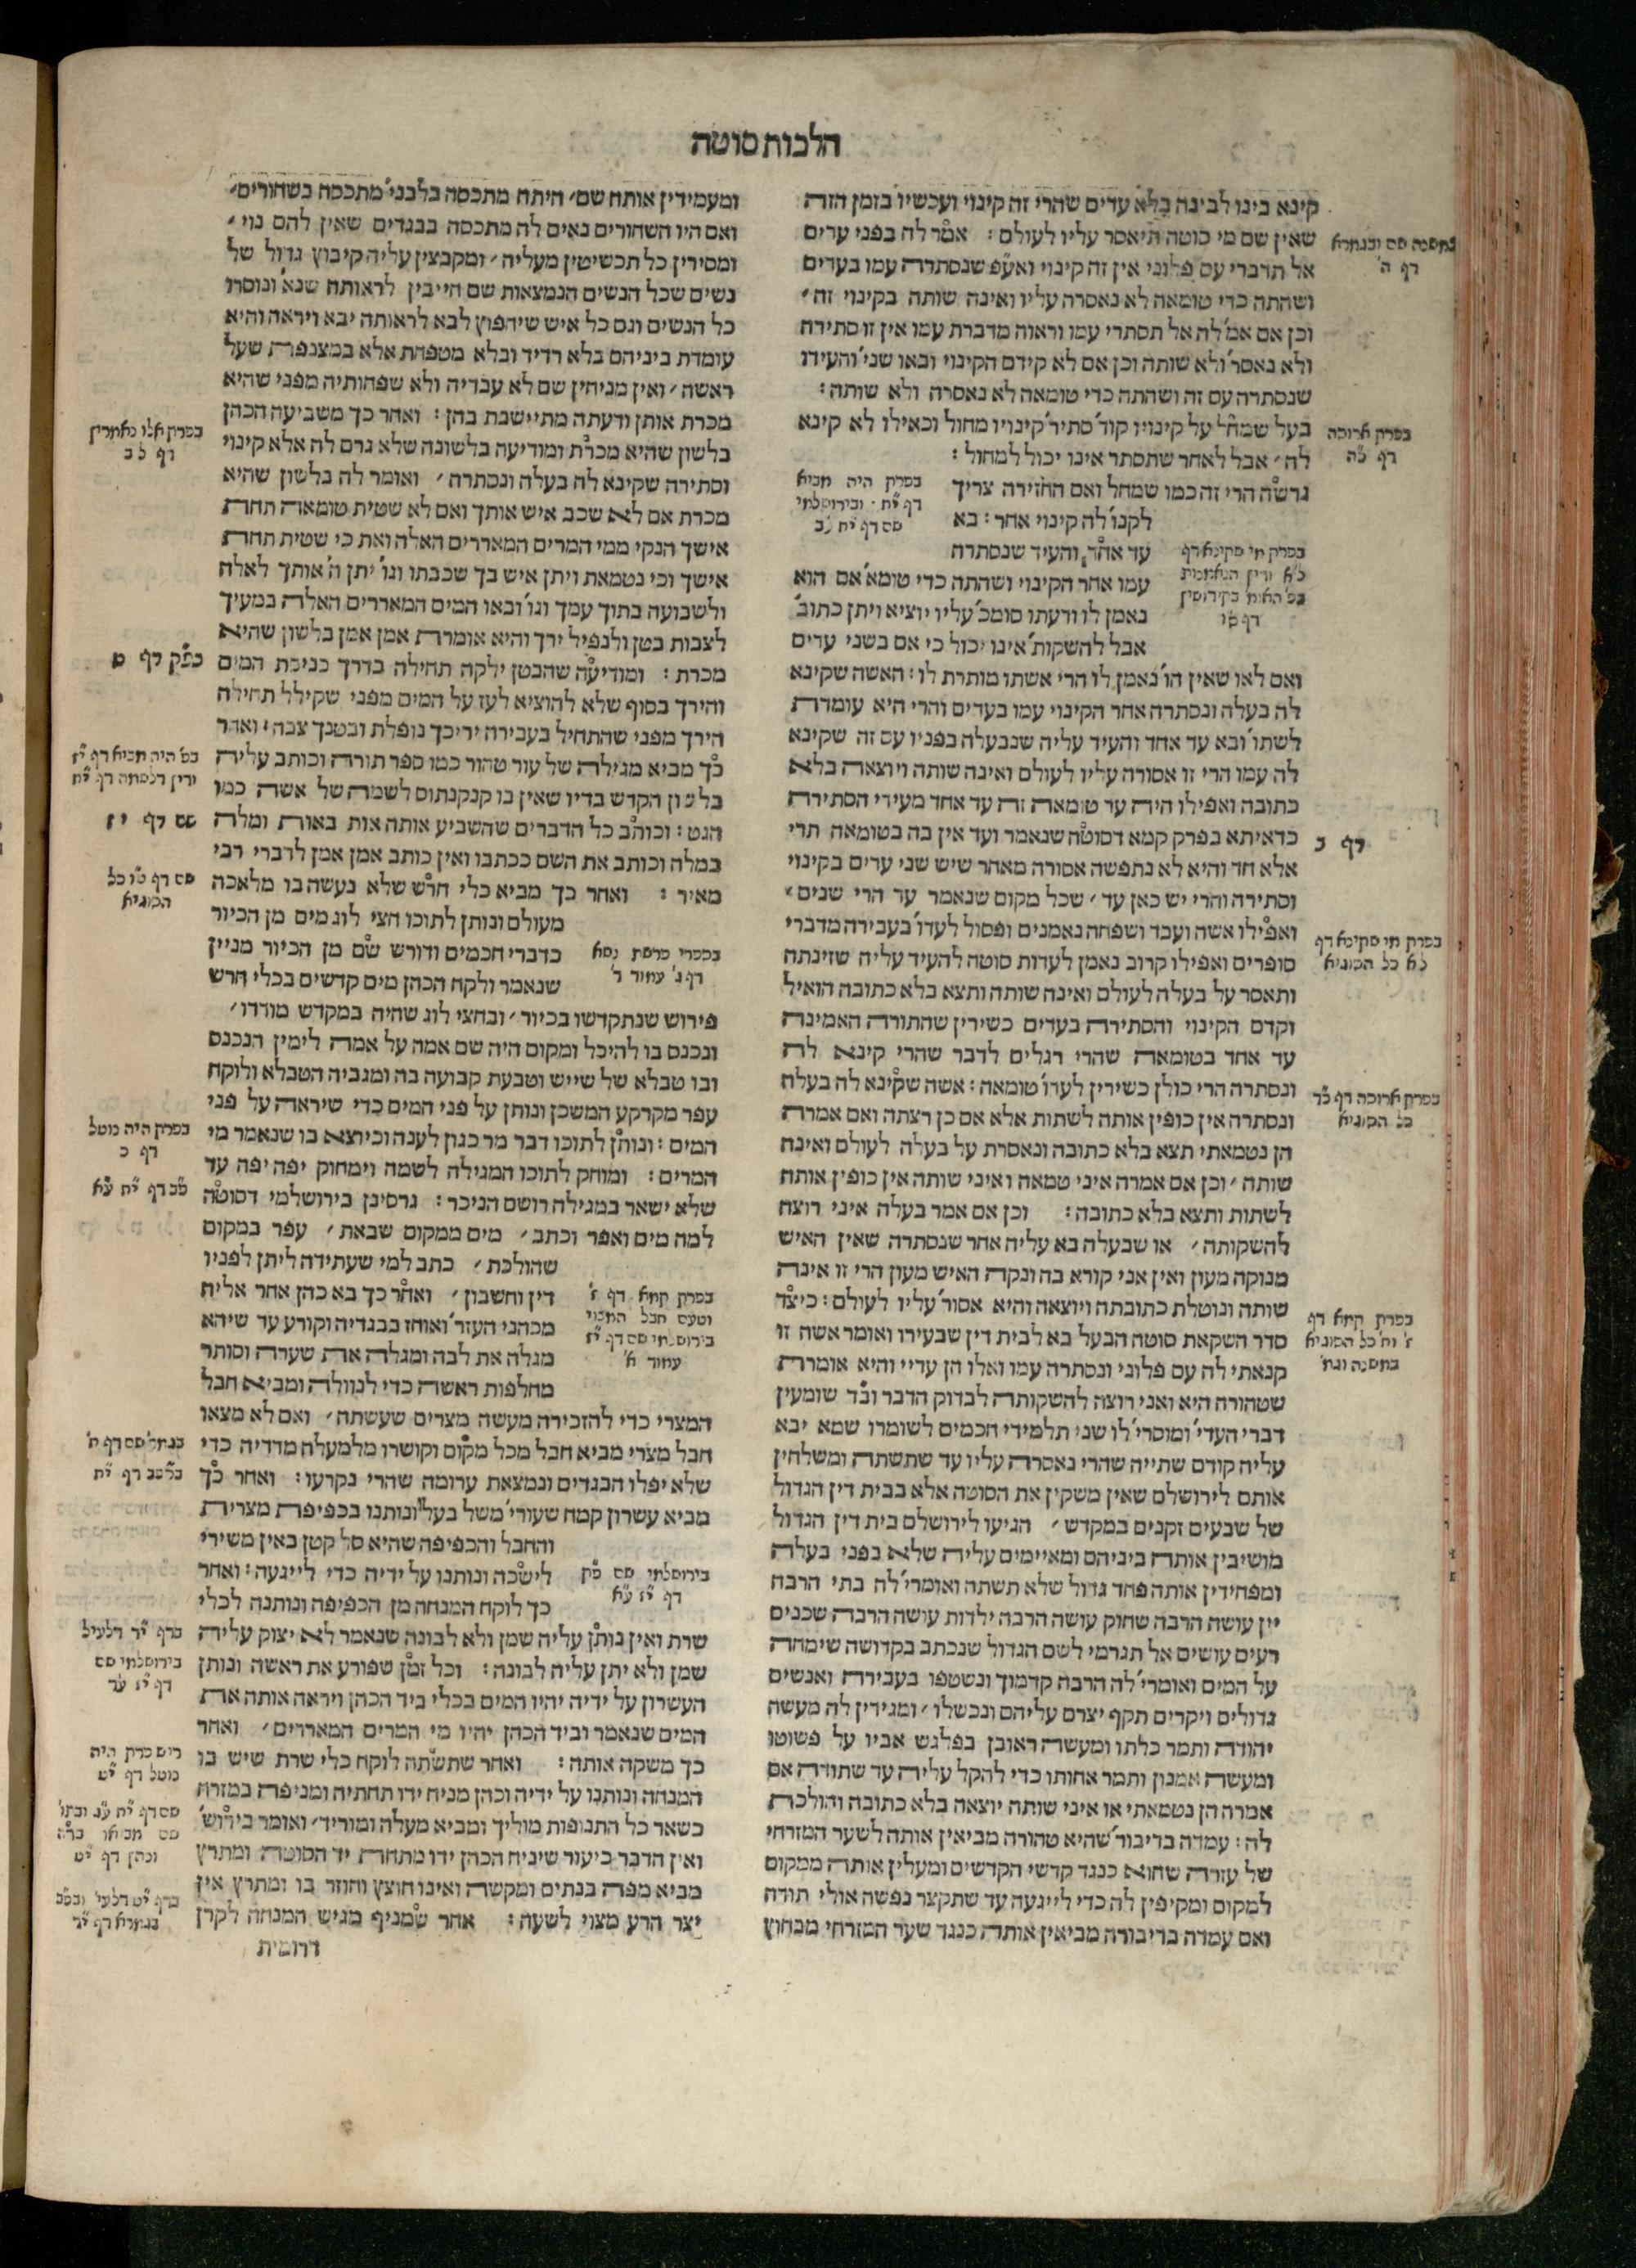 הלכות סוטה
קינא בינו לבינה בלא עדים שהרי זה קינוי ועכשיו בזמן הזה
שאין שם מי סוטה תיאסר עליו לעולם : אמר לה בפני עדים
אל תדברי עם פלוני אין זה קינוי ואע"פ שנסתרה עמו בעדים
ושהתה כדי טומאה לא נאסרה עליו ואינה שותה בקינוי זה׳
וכן אם אמ׳ לה אל תסתרי עמו וראוה מדברת עמו אין זו סתירה
ולא נאסר׳ ולא שותה וכן אם לא קידם הקינוי ובאו שני׳ והעידו
שנסתרה עם זה ושהתה כדי טומאה לא נאסרה ולא שותה :
בעל שמחל על קינויו קוד׳ סתיר׳ קינויו מחול וכאילו לא קינא
לה׳ אבל לאחר שתסתר אינו יכול למחול :
גרשה הרי זה כמו שמחל ואם החזירה צריך
לקנו׳ לה קינוי אחר : בא
עד אחד והעיד שנסתרה
עמו אחר הקינוי ושהתה כדי טומא׳ אם הוא
נאמן לו ודעתו סומכ׳ עליו יוציא ויתן כתוב׳
אבל להשקות׳ אינו יכול כי אם בשני עדים
ואם לאו שאין הו׳ נאמן לו הרי אשתו מותרת לו : האשה שקינא
לה בעלה ונסתרה אחר הקינוי עמו בעדים והרי היא עומדת
לשתו׳ ובא עד אחד והעיד עליה שנבעלה בפניו עם זה שקינא
לה עמו הרי זו אסורה עליו לעולם ואינה שותה ויוצאה בלא
כתובה ואפילו היה עד טומאה זה עד אחד מעידי הסתירה
כדאיתא בפרק קמא דסוטה שנאמר ועד אין בה בטומאה תרי
אלא חד והיא לא נתפשה אסורה מאחר שיש שני עדים בקינוי
וסתירה והרי יש כאן עד׳ שכל מקום שנאמר עד הרי שנים׳
ואפילו אשה ועבד ושפחה נאמנים ופסול לעדו׳ בעבירה מדברי
סופרים ואפילו קרוב נאמן לעדות סוטה להעיד עליה שזינתה
ותאסר על בעלה לעולם ואינה שותה ותצא בלא כתובה הואיל
וקדם הקינוי והסתירה בעדים כשירין שהתורה האמינה
עד אחד בטומאה שהרי רגלים לדבר שהרי קינא לה
ונסתרה הרי כולן כשירין לעדו׳ טומאה : אשה שקינא לה בעלה
ונסתרה אין כופין אותה לשתות אלא אם כן רצתה ואם אמרה
הן נטמאתי תצא בלא כתובה ונאסרת על בעלה לעולם ואינה
שותה׳ וכן אם אמרה איני טמאה ואיני שותה אין כופין אותה
לשתות ותצא בלא כתובה : וכן אם אמר בעלה איני רוצה
להשקותה׳ או שבעלה בא עליה אחר שנסתרה שאין האיש
מנוקה מעון ואין אני קורא בה ונקה האיש מעון הרי זו אינה
שותה ונוטלת כתובתה ויוצאה והיא אסור׳ עליו לעולם : כיצד
סדר השקאת סוטה הבעל בא לבית דין שבעירו ואומר אשה זו
קנאתי לה עם פלוני ונסתרה עמו ואלו הן עדיי והיא אומרת
שטהורה היא ואני רוצה להשקותה לבדוק הדבר וב"ד שומעין
דברי העדי׳ ומוסרי׳ לו שני תלמידי חכמים לשומרו שמא יבא
עליה קודם שתייה שהרי נאסרה עליו עד שתשתה ומשלחין
אותם לירושלם שאין משקין את הסוטה אלא בבית דין הגדול
של שבעים זקנים במקדש׳ הגיעו לירושלם בית דין הגדול
מושיבין אותה ביניהם ומאיימים עליה שלא בפני בעלה
ומפחידין אותה פחד גדול שלא תשתה ואומרי׳ לה בתי הרבה
יין עושה הרבה שחוק עושה הרבה ילדות עושה הרבה שכנים
רעים עושים אל תגרמי לשם הגדול שנכתב בקדושה שימחה
על המים ואומרי׳ לה הרבה קדמוך ונשטפו בעבירה ואנשים
גדולים ויקרים תקף יצרם עליהם ונכשלו׳ ומגידין לה מעשה
יהודה ותמר כלתו ומעשה ראובן בפלגש אביו על פשוטו
ומעשה אמנון ותמר אחותו כדי להקל עליה עד שתודה אם
אמרה הן נטמאתי או איני שותה יוצאה בלא כתובה והולכת
לה : עמדה בדיבור׳ שהיא טהורה מביאין אותה לשער המזרחי
של עזרה שהוא כנגד קדשי הקדשים ומעלין אותה ממקום
למקום ומקיפין לה כדי לייגעה עד שתקצר נפשה אולי תודה
ואם עמדה בדיבורה מביאין אותה כנגד שער המזרחי מבחוץ
במשנה שם ובגמרא
דף ה׳
בפרק ארוסה
דף כ"ה
בפרק היה מביא
דף י"ח ובירושלמי
שם דף י"ח ע"ב
בפרק מי שקינא דף
דף ב
בפרק מי שקינא דף
ל"א כל הסוגיא
בפרק ארוסה דף כ"ד
כל הסוגיא
בפרק קמא דף
ז׳ וח׳ כל הסוגיא
במשנה וגמ׳
ומעמידין אותה שם׳ היתה מתכסה בלבני׳ מתכסה בשחורים׳
ואם היו השחורים נאים לה מתכסה בבגדים שאין להם נוי׳
ומסירין כל תכשיטין מעליה׳ ומקבצין עליה קיבוץ גדול של
נשים שכל הנשים הנמצאות שם חייבין לראותה שנא׳ ונוסרו
כל הנשים וגם כל איש שיחפוץ לבא לראותה יבא ויראה והיא
עומדת ביניהם בלא רדיד ובלא מטפחת אלא במצנפת שעל
ראשה׳ ואין מניחין שם לא עבדיה ולא שפחותיה מפני שהיא
מכרת אותן ודעתה מתיישבת בהן : ואחר כך משביעה הכהן
בלשון שהיא מכרת ומודיעה בלשונה שלא גרם לה אלא קינוי
וסתירה שקינא לה בעלה ונסתרה׳ ואומר לה בלשון שהיא
מכרת אם לא שכב איש אותך ואם לא שטית טומאה תחת
אישך הנקי ממי המרים המאררים האלה ואת כי שטית תחת
אישך וכי נטמאת ויתן איש בך שכבתו וגו׳ יתן ה׳ אותך לאלה
ולשבועה בתוך עמך וגו׳ ובאו המים המאררים האלה במעיך
לצבות בטן ולנפיל ירך והיא אומרת אמן אמן בלשון שהיא
מכרת : ומודיעה שהבטן ילקה תחילה בדרך כניסת המים
והירך בסוף שלא להוציא לעז על המים מפני שקילל תחילה
הירך מפני שהתחיל בעבירה יריכך נופלת ובטנך צבה : ואחר
כך מביא מגילה של עור טהור כמו ספר תורה וכותב עליה
בלשון הקדש בדיו שאין בו קנקנתום לשמה של אשה כמו
הגט : וכותב כל הדברים שהשביע אותה אות באות ומלה
במלה וכותב את השם ככתבו ואין כותב אמן אמן לדברי רבי
מאיר : ואחר כך מביא כלי חרש שלא נעשה בו מלאכה
מעולם ונותן לתוכו חצי לוג מים מן הכיור
כדברי חכמים ודורש שם מן הכיור מניין
שנאמר ולקח הכהן מים קדשים בכלי חרש
פירוש שנתקדשו בכיור׳ ובחצי לוג שהיה במקדש מודדו׳
ונכנס בו להיכל ומקום היה שם אמה על אמה לימין הנכנס
ובו טבלא של שייש וטבעת קבועה בה ומגביה הטבלא ולוקח
עפר מקרקע המשכן ונותן על פני המים כדי שיראה על פני
המים : ונותן לתוכו דבר מר כגון לענה וכיוצא בו שנאמר מי
המרים : ומוחק לתוכו המגילה לשמה וימחוק יפה יפה עד
שלא ישאר במגילה רושם הניכר : גרסינן בירושלמי דסוטה
למה מים ואפר וכתב׳ מים ממקום שבאת׳ עפר במקום
שהולכת׳ כתב למי שעתידה ליתן לפניו
דין וחשבון׳ ואחר כך בא כהן אחר אליה
מכהני העזר׳ ואוחז בבגדיה וקורע עד שיהא
מגלה את לבה ומגלה את שערה וסותר
מחלפות ראשה כדי לנוולה ומביא חבל
המצרי כדי להזכירה מעשה מצרים שעשתה׳ ואם לא מצאו
חבל מצרי מביא חבל מכל מקום וקושרו מלמעלה מדדיה כדי
שלא יפלו הבגדים ונמצאת ערומה שהרי נקרעו : ואחר כך
מביא עשרון קמח שעורי׳ משל בעל ונותנו בכפיפה מצרית
והחבל והכפיפה שהיא סל קטן באין משירי
לישכה ונותנו על ידיה כדי לייגעה : ואחר
כך לוקח המנחה מן הכפיפה ונותנה לכלי
שרת ואין נותן עליה שמן ולא לבונה שנאמר לא יצוק עליה
שמן ולא יתן עליה לבונה : וכל זמן שפורע את ראשה ונותן
העשרון על ידיה יהיו המים בכלי ביד הכהן ויראה אותה את
המים שנאמר וביד הכהן יהיו מי המרים המאררים׳ ואחר
כך משקה אותה : ואחר שתשתה לוקח כלי שרת שיש בו
המנחה ונותנו על ידיה וכהן מניח ידו תחתיה ומניפה במזרח
כשאר כל התנופות מוליך ומביא מעלה ומוריד׳ ואומר בירוש׳
ואין הדבר כיעור שיניח הכהן ידו מתחת יד הסוטה ומתרץ
מביא מפה בנתים ומקשה ואינו חוצץ וחוזר בו ומתרץ אין
יצר הרע מצוי לשעה : אחר שמניף מגיש המנחה לקרן
דרומית
בפרק אלו נאמרין
דף ל"ב
בפ"ק דף ט
בפ׳ היה מביא דף י"ז
שם דף י"ז
שם דף ט"ו כל
הסוגיא
בספרי פרשת נשא
בפרק היה נוטל
דף כ
דף י"ח ע"א
בפרק קמא דף ז׳
וטעם חבל המצרי
בירושלמי שם דף י"ז
עמוד א׳
בירושלמי שם פ"ק
דף י"ז ע"א
בדף י"ד דלעיל
בירושלמי שם
ריש פרק היה
נוטל דף י"ט